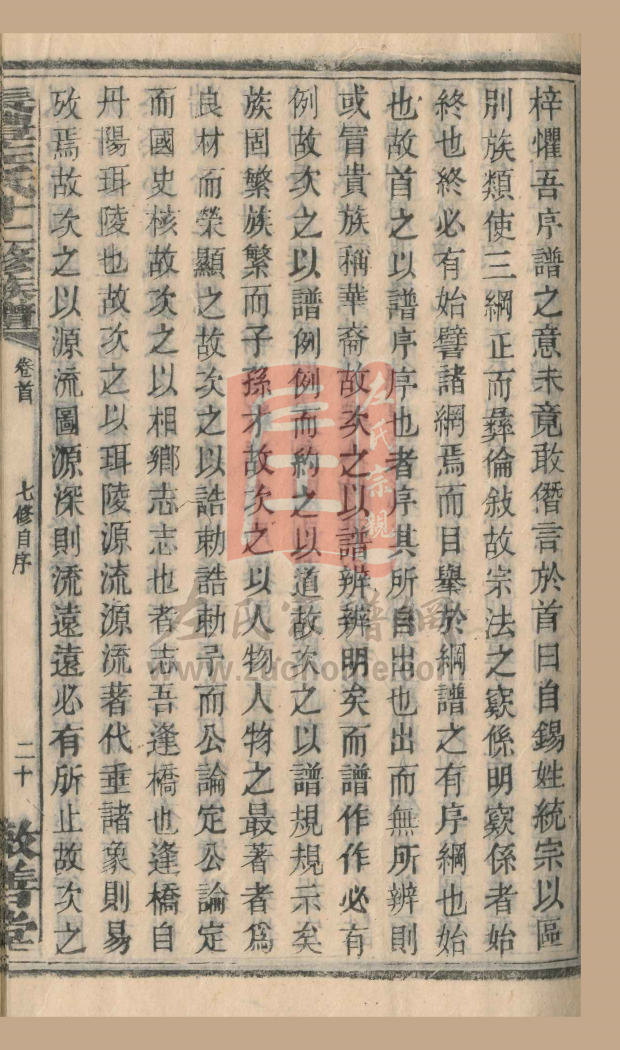 梓懼吾序譜之意未竟敢僭言於首曰自錫姓統宗以區
別族類使三綱正而彝倫敍故宗法之竅係明竅係者始
終也終必有始譬諸網焉而目舉於綱譜之有序綱也始
也故首之以譜序序也者序其所自出也出而無所辨則
或冐貴族稱華裔故次之以譜辨辨明矣而譜作作必有
例故次之以譜例例而約之以道故次之以譜規規示矣
族固繁族繁而子孫才故次之以人物人物之最著者爲
良材而榮顯之故次之以誥勅誥勅予而公論定公論定
而國史核故次之以相鄉志志也者志吾逢橋也逢橋自
丹陽珥陵也故次之以珥陵源流源流著代垂諸象則易
攷焉故次之以源流圖源深則流遠遠必有所止故次之
左氏十二修族譜
卷首
七修自序
二十
敦善堂
左氏宗親
左氏家譜網
www.zuohome.com